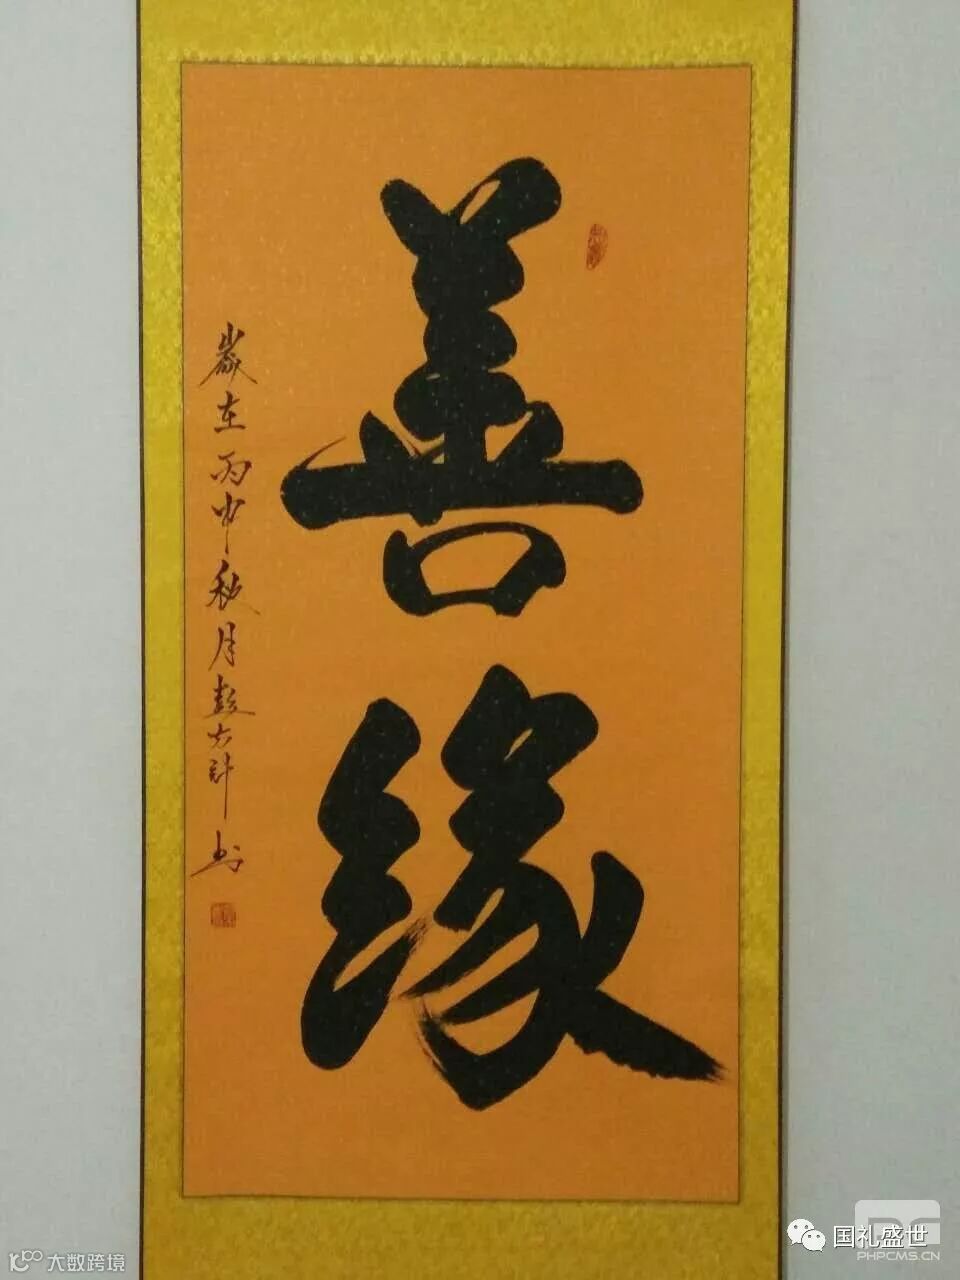 善缘
歲在丙申秋月彭大計书
国礼盛世
大数跨境
PHPCMS.CN